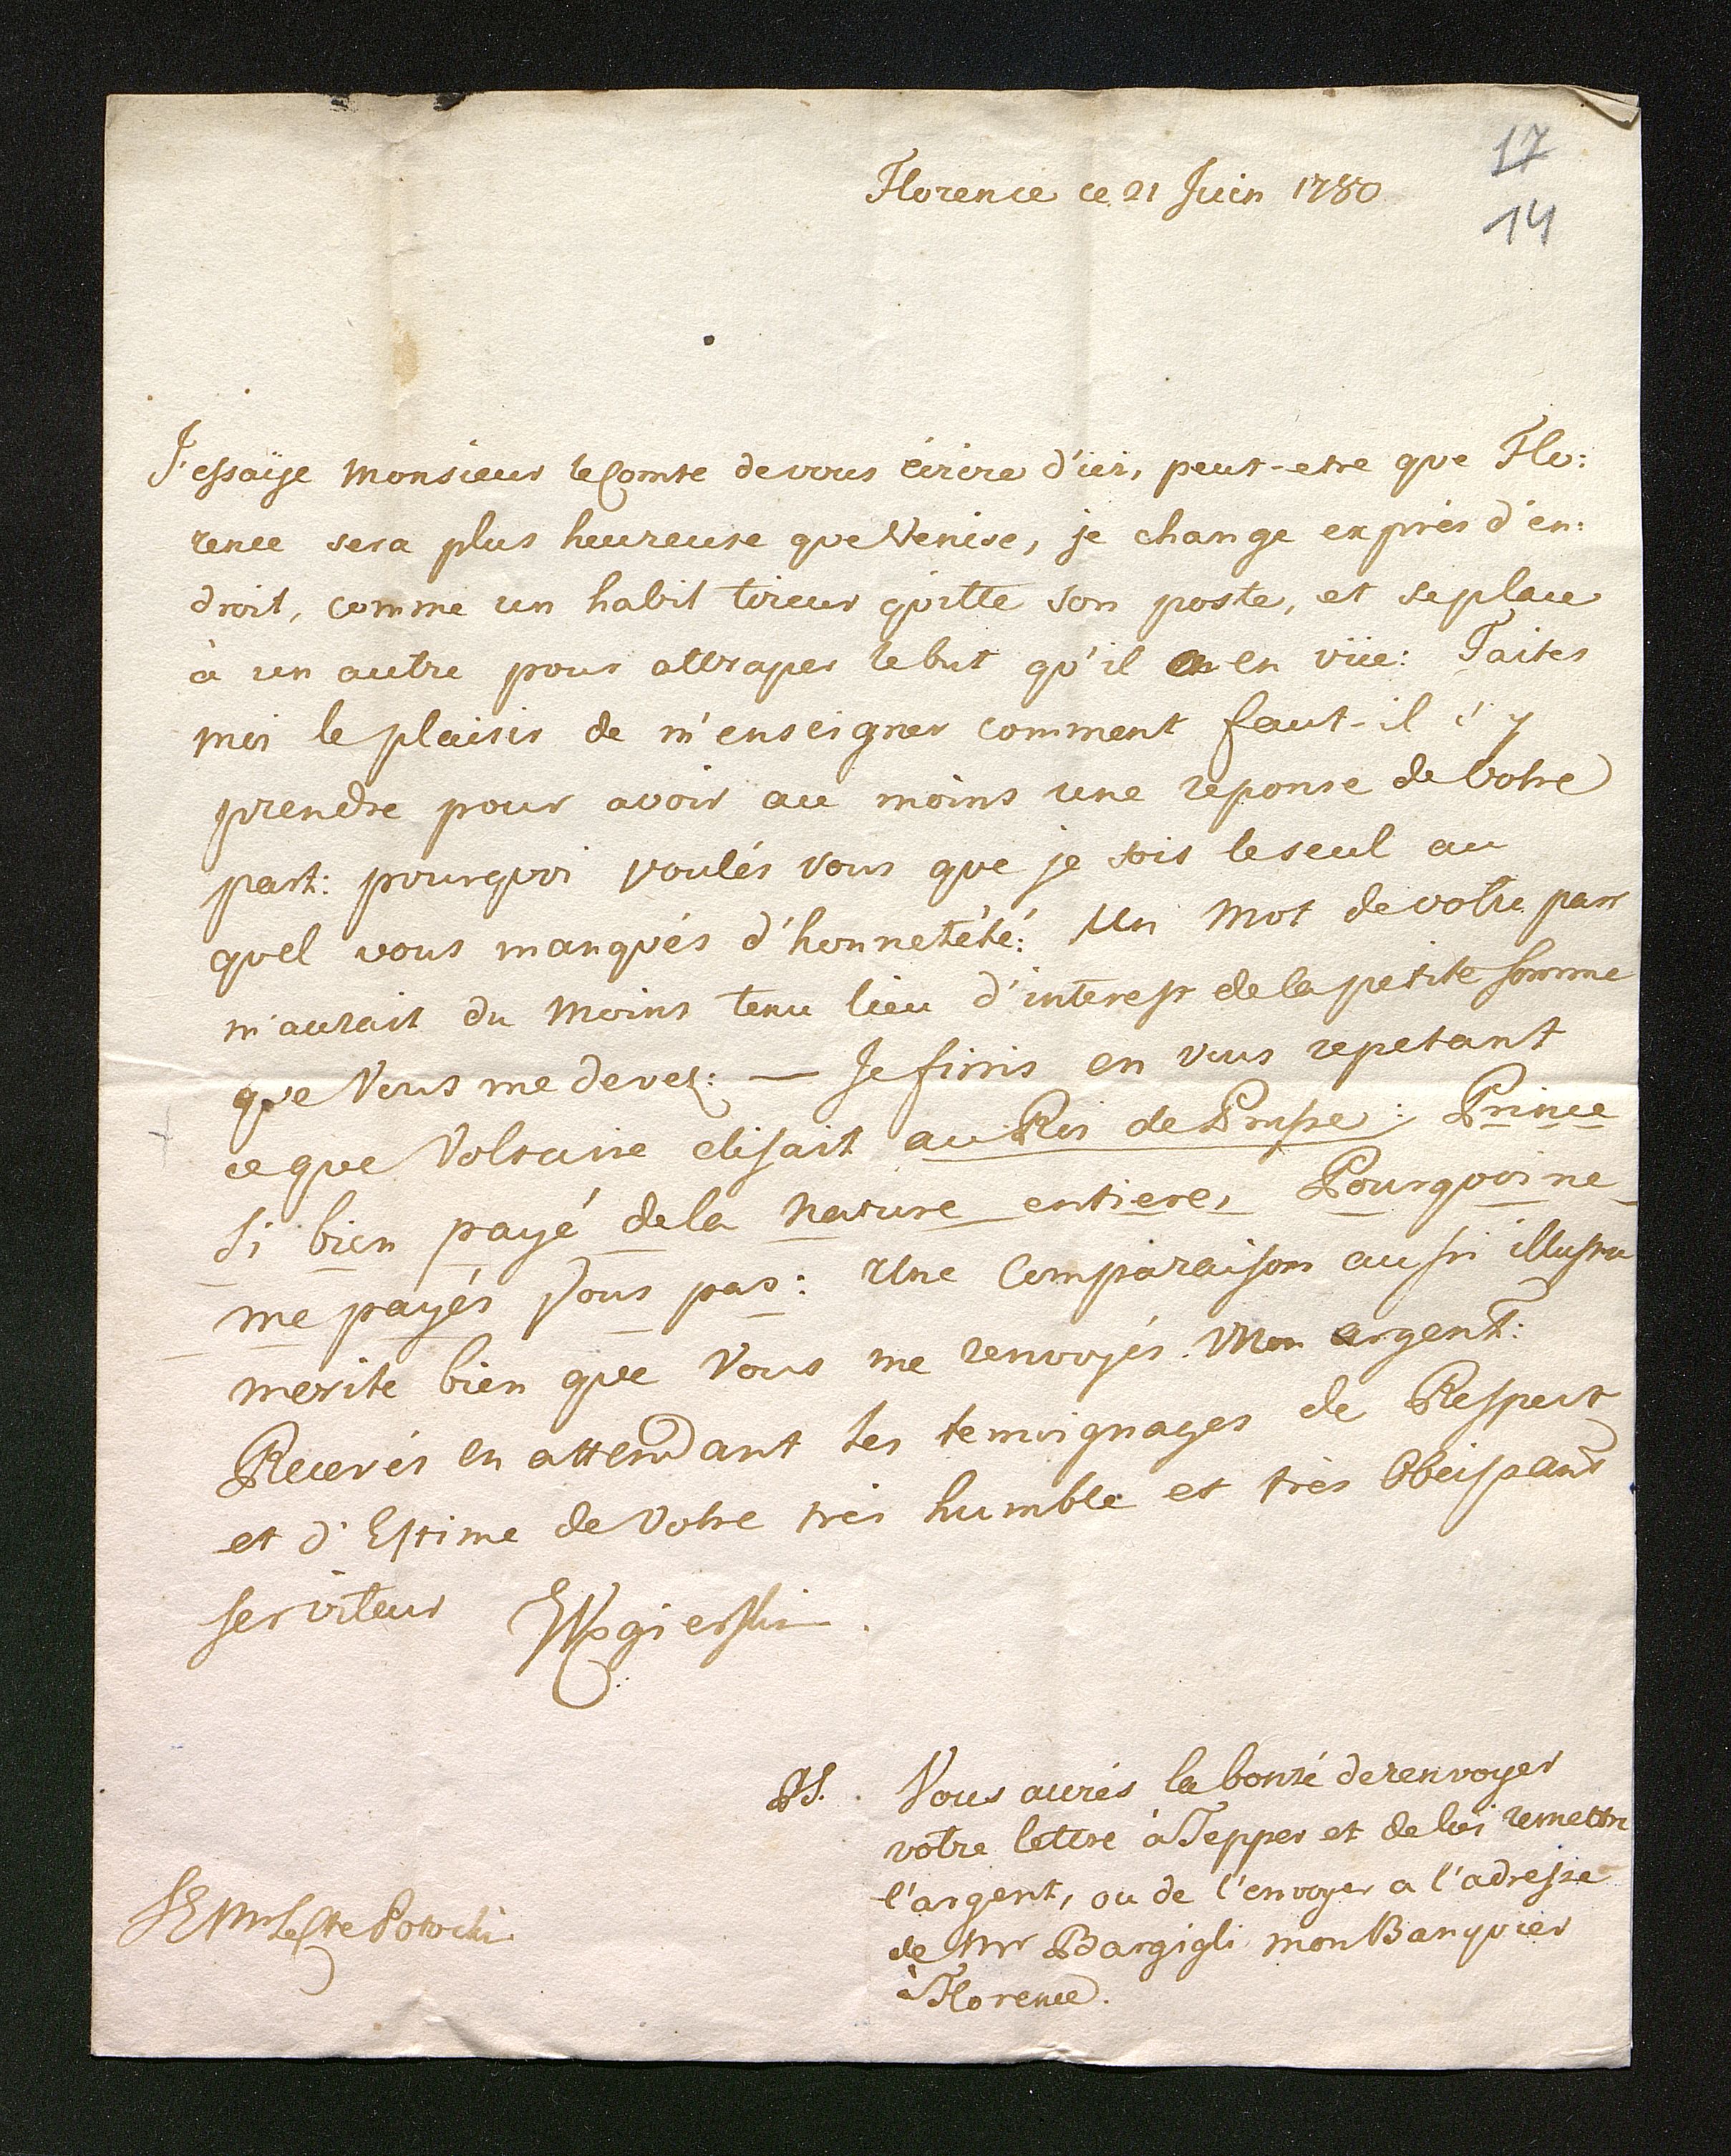 17
Florence ce 21 Juin 1780
14
J'essaÿe Monsieur le Comte de vous écrire d'ici, peut-etre que Flo:
rence sera plus heureuse que Venise, je change exprès d'en:
droit, comme un habil tireur qvitte son poste, et se place
à un autre pour attraper le but qv'il a en vüe: Faites
moi le plaisir de m'enseigner comment faut-il s'y
prendre pour avoir au moins une reponse de Votre
part: pourqvoi voulés vous que je sois le seul au
qvel vous manqvés d'honnetété: Un Mot de votre part
m'aurait du Moins tenu lieu d'interest de la petite somme
qve Vous me devez: — Je finis en vous repetant
ce qve Voltaire disait au Roi de Prusse: Prince
Si bien payé de la Nature entiere, Pourqvoi ne
me payés Vous pas: Une Comparaison aussi illustre
merite bien qve Vous me renvoyés Mon argent:
Recevés en attendant les temoignages de Respect
et d'Estime de Votre très humble et très Obeissant
serviteur Wegierski.
PS. Vous aurés la bonté de renvoyer
votre lettre à Tepper et de lui remettre
l'argent, ou de l'envoyer a l'adresse
de Mr Bargigli mon Banqvier
à Florence.
SE Mr le Cte Potocki